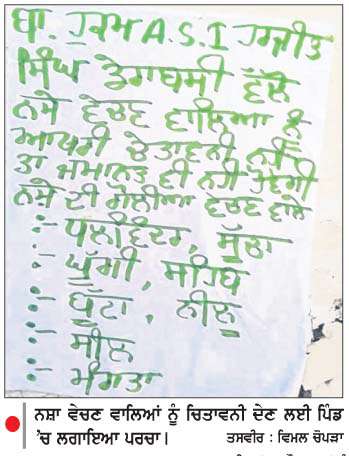 ਬਾ. ਹੁਕਮ A.S.I ਹਰਜੀਤ
ਸਿੰਘ ਡੇਰਾਬਸੀ ਵੱਲੋਂ
ਨਸੇ ਵੇਚਣ ਵਾਲਿਆ ਨੂੰ
ਆਖਰੀ ਚੇਤਾਵਨੀ ਨਹੀਂ
ਤਾ ਜਮਾਨਤ ਵੀ ਨਹੀ ਹੋਵੇਗੀ
ਨਸੇ ਦੀ ਗੋਲੀਆ ਵੇਚਣ ਵਾਲੇ
:- ਪਲਵਿੰਦਰ, ਸੁੱਚਾ
:- ਘੁੱਗੀ, ਸਹਿਬ
:- ਬੁੱਟਾ, ਨੀਲੂ
:- ਸੀਲ
:- ਮੰਗਤਾ
ਨਸ਼ਾ ਵੇਚਣ ਵਾਲਿਆਂ ਨੂੰ ਚਿਤਾਵਨੀ ਦੇਣ ਲਈ ਪਿੰਡ
'ਚ ਲਗਾਇਆ ਪਰਚਾ। ਤਸਵੀਰ : ਵਿਮਲ ਚੋਪੜਾ